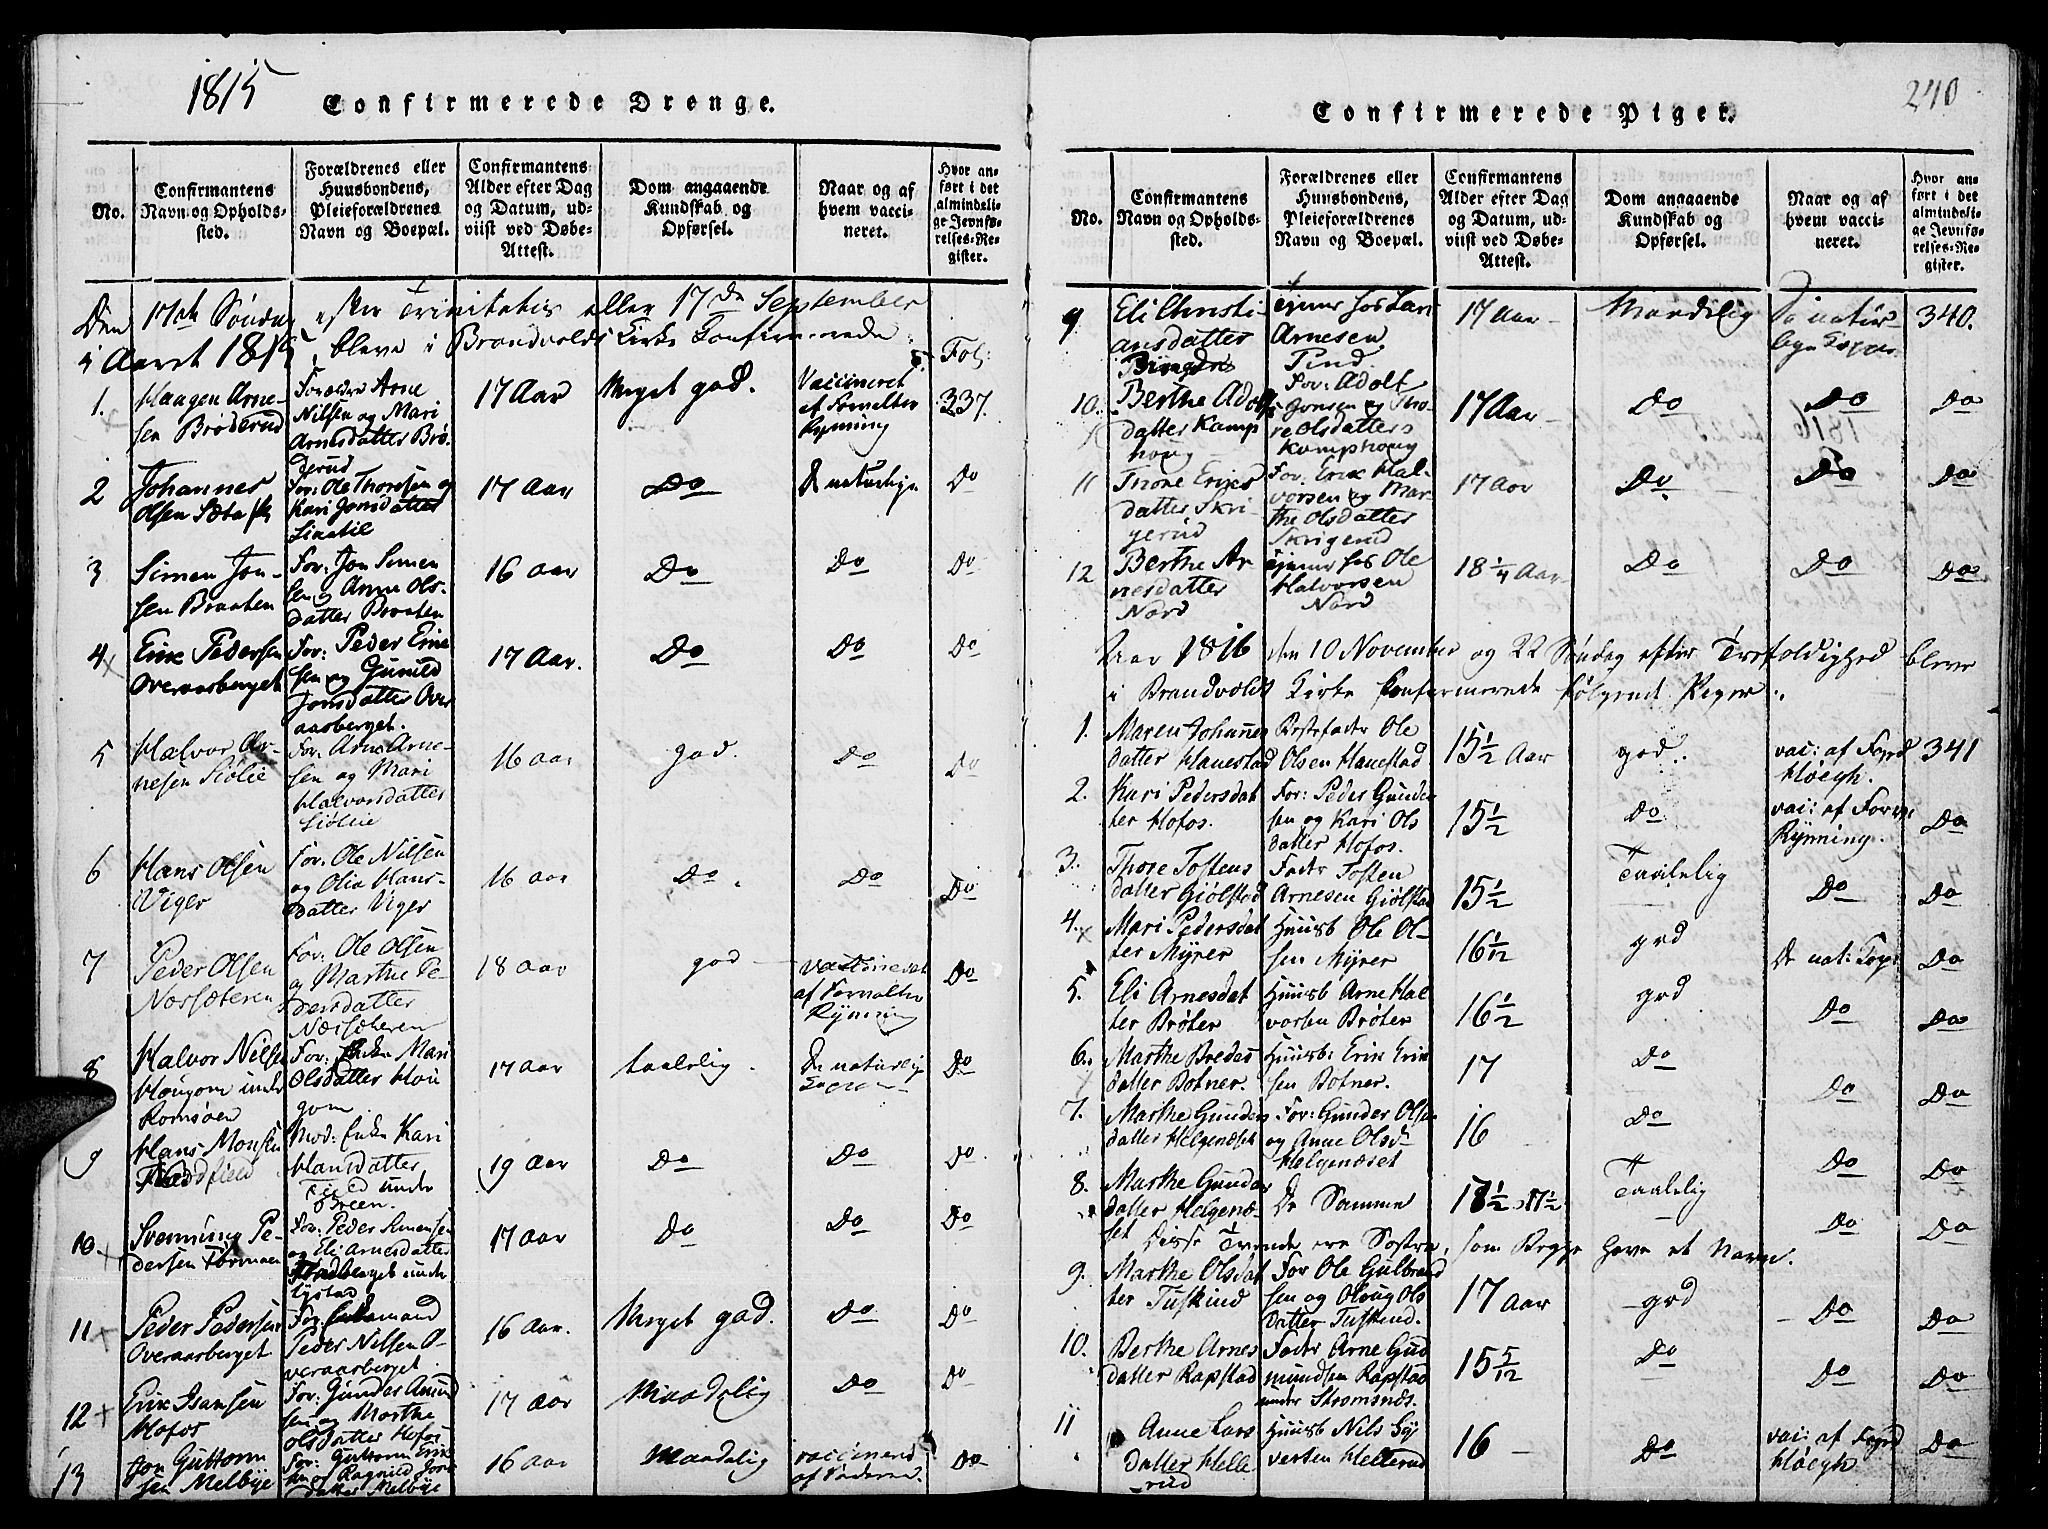 1815
Confirmerede Drenge.
No.
Confirmantens
Navn og Opholds-
sted.
Forældrenes eller
Huusbondens,
Pleieforældrenes
Navn og Boepæl.
Confirmantens
Alder efter Dag
og Datum, ud-
viist ved Døbe-
Attest.
Dom angaaende
Kundskab og
Opførsel.
Naar og af
hvem vacci-
neret.
Hvor an-
ført i det
almindeli-
ge Jevnfø-
relses-Re-
gister.
Den 17de Søndag efter Trinitatis eller 17de September
i Aaret 1815, bleve i Brandvolds Kirke Confirmerede
Fol:
1.
Haagen Arne-
sen Brøderud
Forældre Arne
Nilsen og Mari
Arnesdatter Brø-
derud
17 Aar
Meget god.
Vaccineret
af Forvalter
Rynning
337.
2
Johannes
Olsen
For: Ole Thorsen og
Kari Jonsdatter
17 Aar
Do
De naturlige
Do
3
Simen Jon-
sen Braaten
For: Jon Simen
sen og Anne Ols-
datter Braaten
16 aar
Do
Do
Do
4
Erik Pedersen
Overaasberget
For: Peder Erik
sen og Gunild
Jonsdatter Over
aasberget.
17 Aar.
Do
Do
Do
5
Halvor Ar-
nesen Siølie
For: Arne Arne-
sen og Mari
Halvorsdatter
Siølie
16 aar
god.
Do
Do
6
Hans Olsen
Viger
For: Ole Nilsen
og Olia Hans-
datter Viger
16 aar
Do.
Do
Do
7
Peder Olsen
Norsæteren
For: Ole Olsen
og Marthe Pe-
dersdatter
Norsæteren
18 aar
god
vaccineret
af Forvalter
Rynning
Do
8
Halvor Nilsen
Hougom under
Romsøen
For: Enke Mari
Olsdatter Hou
gom
17 aar
taalelig.
De naturlige
Do
9
Hans Monsen
Mod: Enke Kari
Hansdatter
under
19 aar
Do
Do
Do
10.
Svenning Pe-
dersen
For: Peder Simensen
og Eli Arnesdatter
under
17 aar
Do
Do
Do
11
Peder Pedersen
Overaasberget
For: Enkemand
Peder Nilsen O-
veraasberget
16 Aar.
Meget god.
Do
Do
12
Erik
Hofos
For: Gunder Amund
sen og Marthe
Olsdatter Hofos
17 aar
Maadelig
Do
Do
13
Jon Guttorm
sen Melbye
For: Guttorm Erik
sen og Ragnild Jons
datter Melbye
16 aar
Maadelig
vaccineret
af Faderen.
Do
240
Confirmerede Piger.
No.
Confirmantens
Navn og Opholds-
sted.
Forældrenes eller
Huusbondens,
Pleieforældrenes
Navn og Boepæl.
Confirmantens
Alder efter Dag
og Datum, ud-
viist ved Døbe-
Attest.
Dom angaaende
Kundskab og
Opførsel.
Naar og af
hvem vacci-
neret.
Hvor an-
ført i det
almindeli-
ge Jevnfø-
relses-Re-
gister.
9
Eli Christi-
ansdatter
tjener hos Lars
Arnesen
17 Aar
Maadelig
De natur-
lige Kopper
340.
10.
Berthe Adolfs
datter Kamp
houg
For: Adolf
Jonsen og Tho-
re Olsdatter
Kamphoug
17 Aar
Do
Do
Do
11
Thore Eriks
datter Skri-
gerud
For: Erik Hal-
vorsen og Mar-
the Olsdatter
Skrigerud
17 Aar
Do
Do
Do
12
Berthe Ar
nesdatter
Nord
tjener hos Ole
Halvorsen
Nord
18 1/4 Aar
Do
Do
Do
Aar 1816 den 10 November og 22 Søndag efter Trefoldighed bleve
i Brandvolds Kirke Confirmerede følgende Piger.
1.
Maren Johannes
datter Hanestad
Bestefader Ole
Olsen Hanestad
15 1/2 Aar
god.
vac: af
Høegh.
341
2.
Kari Pedersdat
ter Hofos.
For: Peder Gunder
sen og Kari Ols
datter Hofos.
15 1/2
Do
vac: af Forv:
Rynning.
Do
3.
Thore Tostens
datter Giølstad
Fader Tosten
Arnesen Giølstad
15 1/2
Taalelig
Do
Do
4.
Mari Pedersdat
ter Myrer
Huusb Ole Ol-
sen Myrer
16 1/12
god
De nat: Kopr
Do
5.
Eli Arnesdat
ter Brøter
Huusb Arne Hal
vorsen Brøter
16 1/2
god
Do
Do
6.
Marthe Bredes
datter Botner.
Huusb: Erik Erik
sen Botner.
17
Do
Do
Do
7.
Marthe Gunders
datter Helgenæset
For: Gunder Olsen
og Anne Olsd
Helgenæset
16
Do
Do
Do
8.
Marthe Gunders
datter Helgenæ-
set
De Samme
18 1/2
17 1/2
Taalelig
Do
Do
Disse Tvende ere Søstre, som Begge have et Navn.
9.
Marthe Olsdat
ter Tuskind
For Ole Gulbrand
sen og Oloug Ols
datter Tuskind.
17 Aar
god
Do
Do
10.
Berthe Arnes
datter Rapstad
Fader Arne Gud
mundsen Rapstad
under Strømsnæs.
15 5/12
Do
Do
Do
11
Anne Lars
datter Helle
rud
Huusb Nils Sy
versen Hellerud
16
Do
vac: af
Høegh.
Do